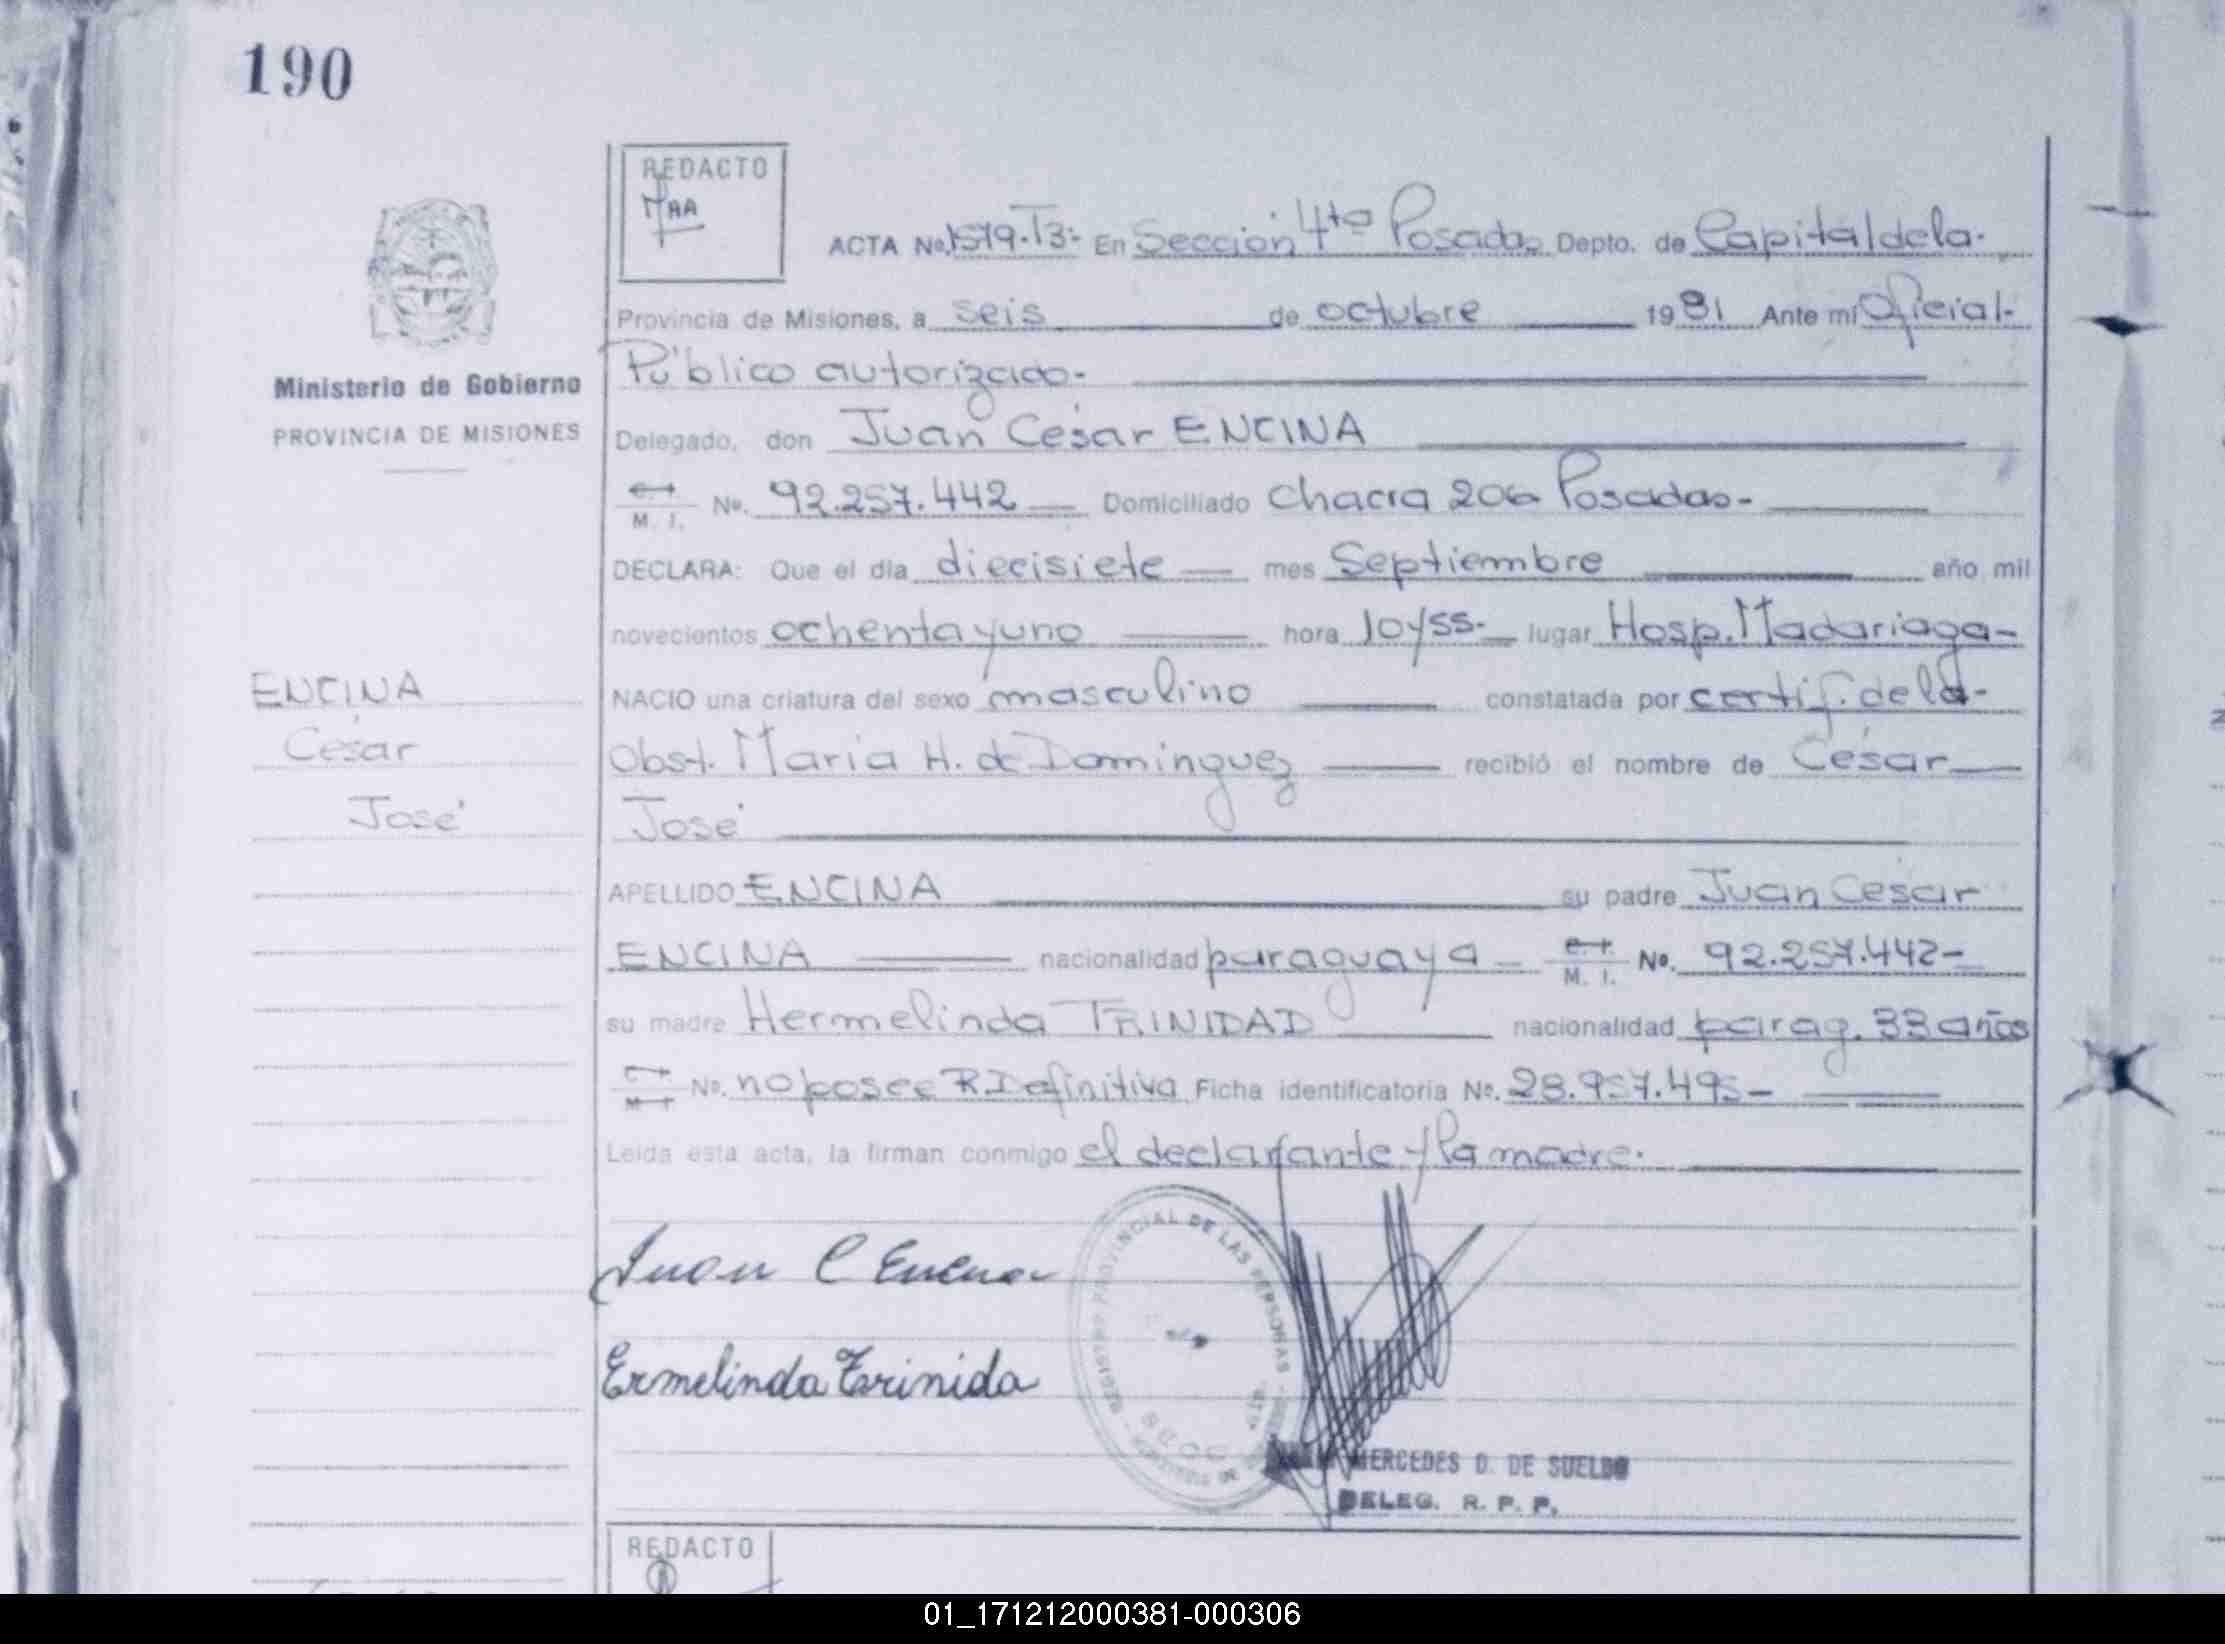 190
REDACTO
ACTA No. 1519-T3- En Sección 4ta Posadas Depto. de Capital de la-
Provincia de Misiones, a seis de octubre 1981 Ante mi Oficial-
Público autorizado-
Ministerio de Gobierno
PROVINCIA DE MISIONES
Delegado, don Juan César ENCINA
M. I. No. 92.257.442 Domiciliado Chacra 206 Posadas-
DECLARA: Que el día diecisiete mes Septiembre año mil
novecientos ochenta y uno hora 10y55- lugar Hosp. Madariaga-
ENCINA
César
José
NACIO una criatura del sexo masculino constatada por certif. de la-
Obst. María H. de Dominguez recibió el nombre de César
José
APELLIDO ENCINA su padre Juan César
ENCINA nacionalidad paraguaya M. I. No. 92.257.442-
su madre Hermelinda TRINIDAD nacionalidad parag. 33 años
No. no posee R. Definitiva Ficha identificatoria No. 28.957.495-
Leída esta acta, la firman conmigo el declarante y la madre.
Juan C Encina
Ermelinda Trinida
REGISTRO PROVINCIAL DE LAS PERSONAS
MERCEDES D. DE SUELDO
DELEG. R. P. P.
REDACTO
01_171212000381-000306